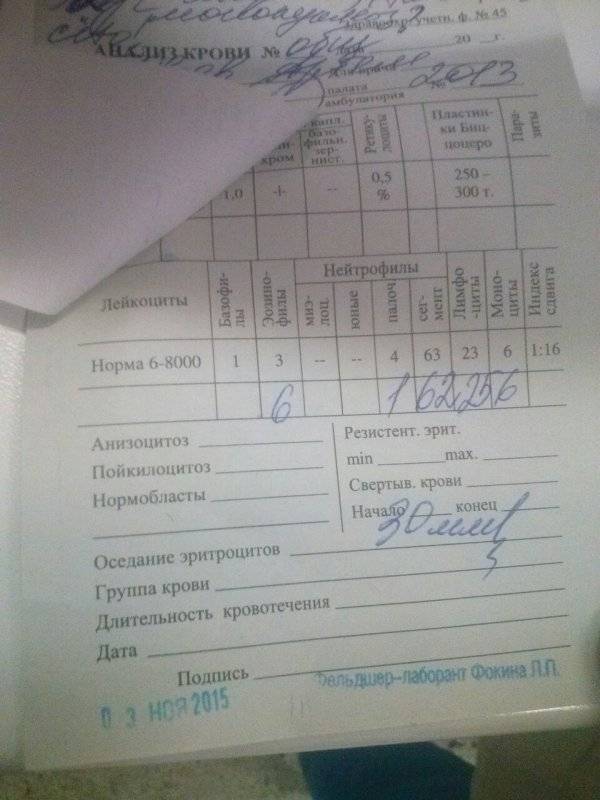 здравоохр. учетн. ф. № 45
АНАЛИЗ КРОВИ №
20 __г.
палата
амбулатория
2013
капл.
базо-
фильн.
зер-
нист.
хром
Ретику-
лоциты
Пластин-
ки Биц-
поцеро
Пара-
зиты
1,0 -|- -- 0,5 % 250 – 300 т.
Лейкоциты Базофи-лы Эозино-филы Нейтрофилы Лимфо-циты Моно-циты Индекс сдвига
миэ-лоц. юные палоч сег-мент
Норма 6-8000 1 3 -- -- 4 63 23 6 1:16
6 1 62 25 6
Анизоцитоз
Пойкилоцитоз
Нормобласты
Резистент. эрит.
min max.
Свертыв. крови
Начало конец
30 мм/ч
Оседание эритроцитов
Группа крови
Длительность кровотечения
Дата
Подпись
Фельдшер-лаборант Фокина Л.П.
0 3 НОЯ 2015